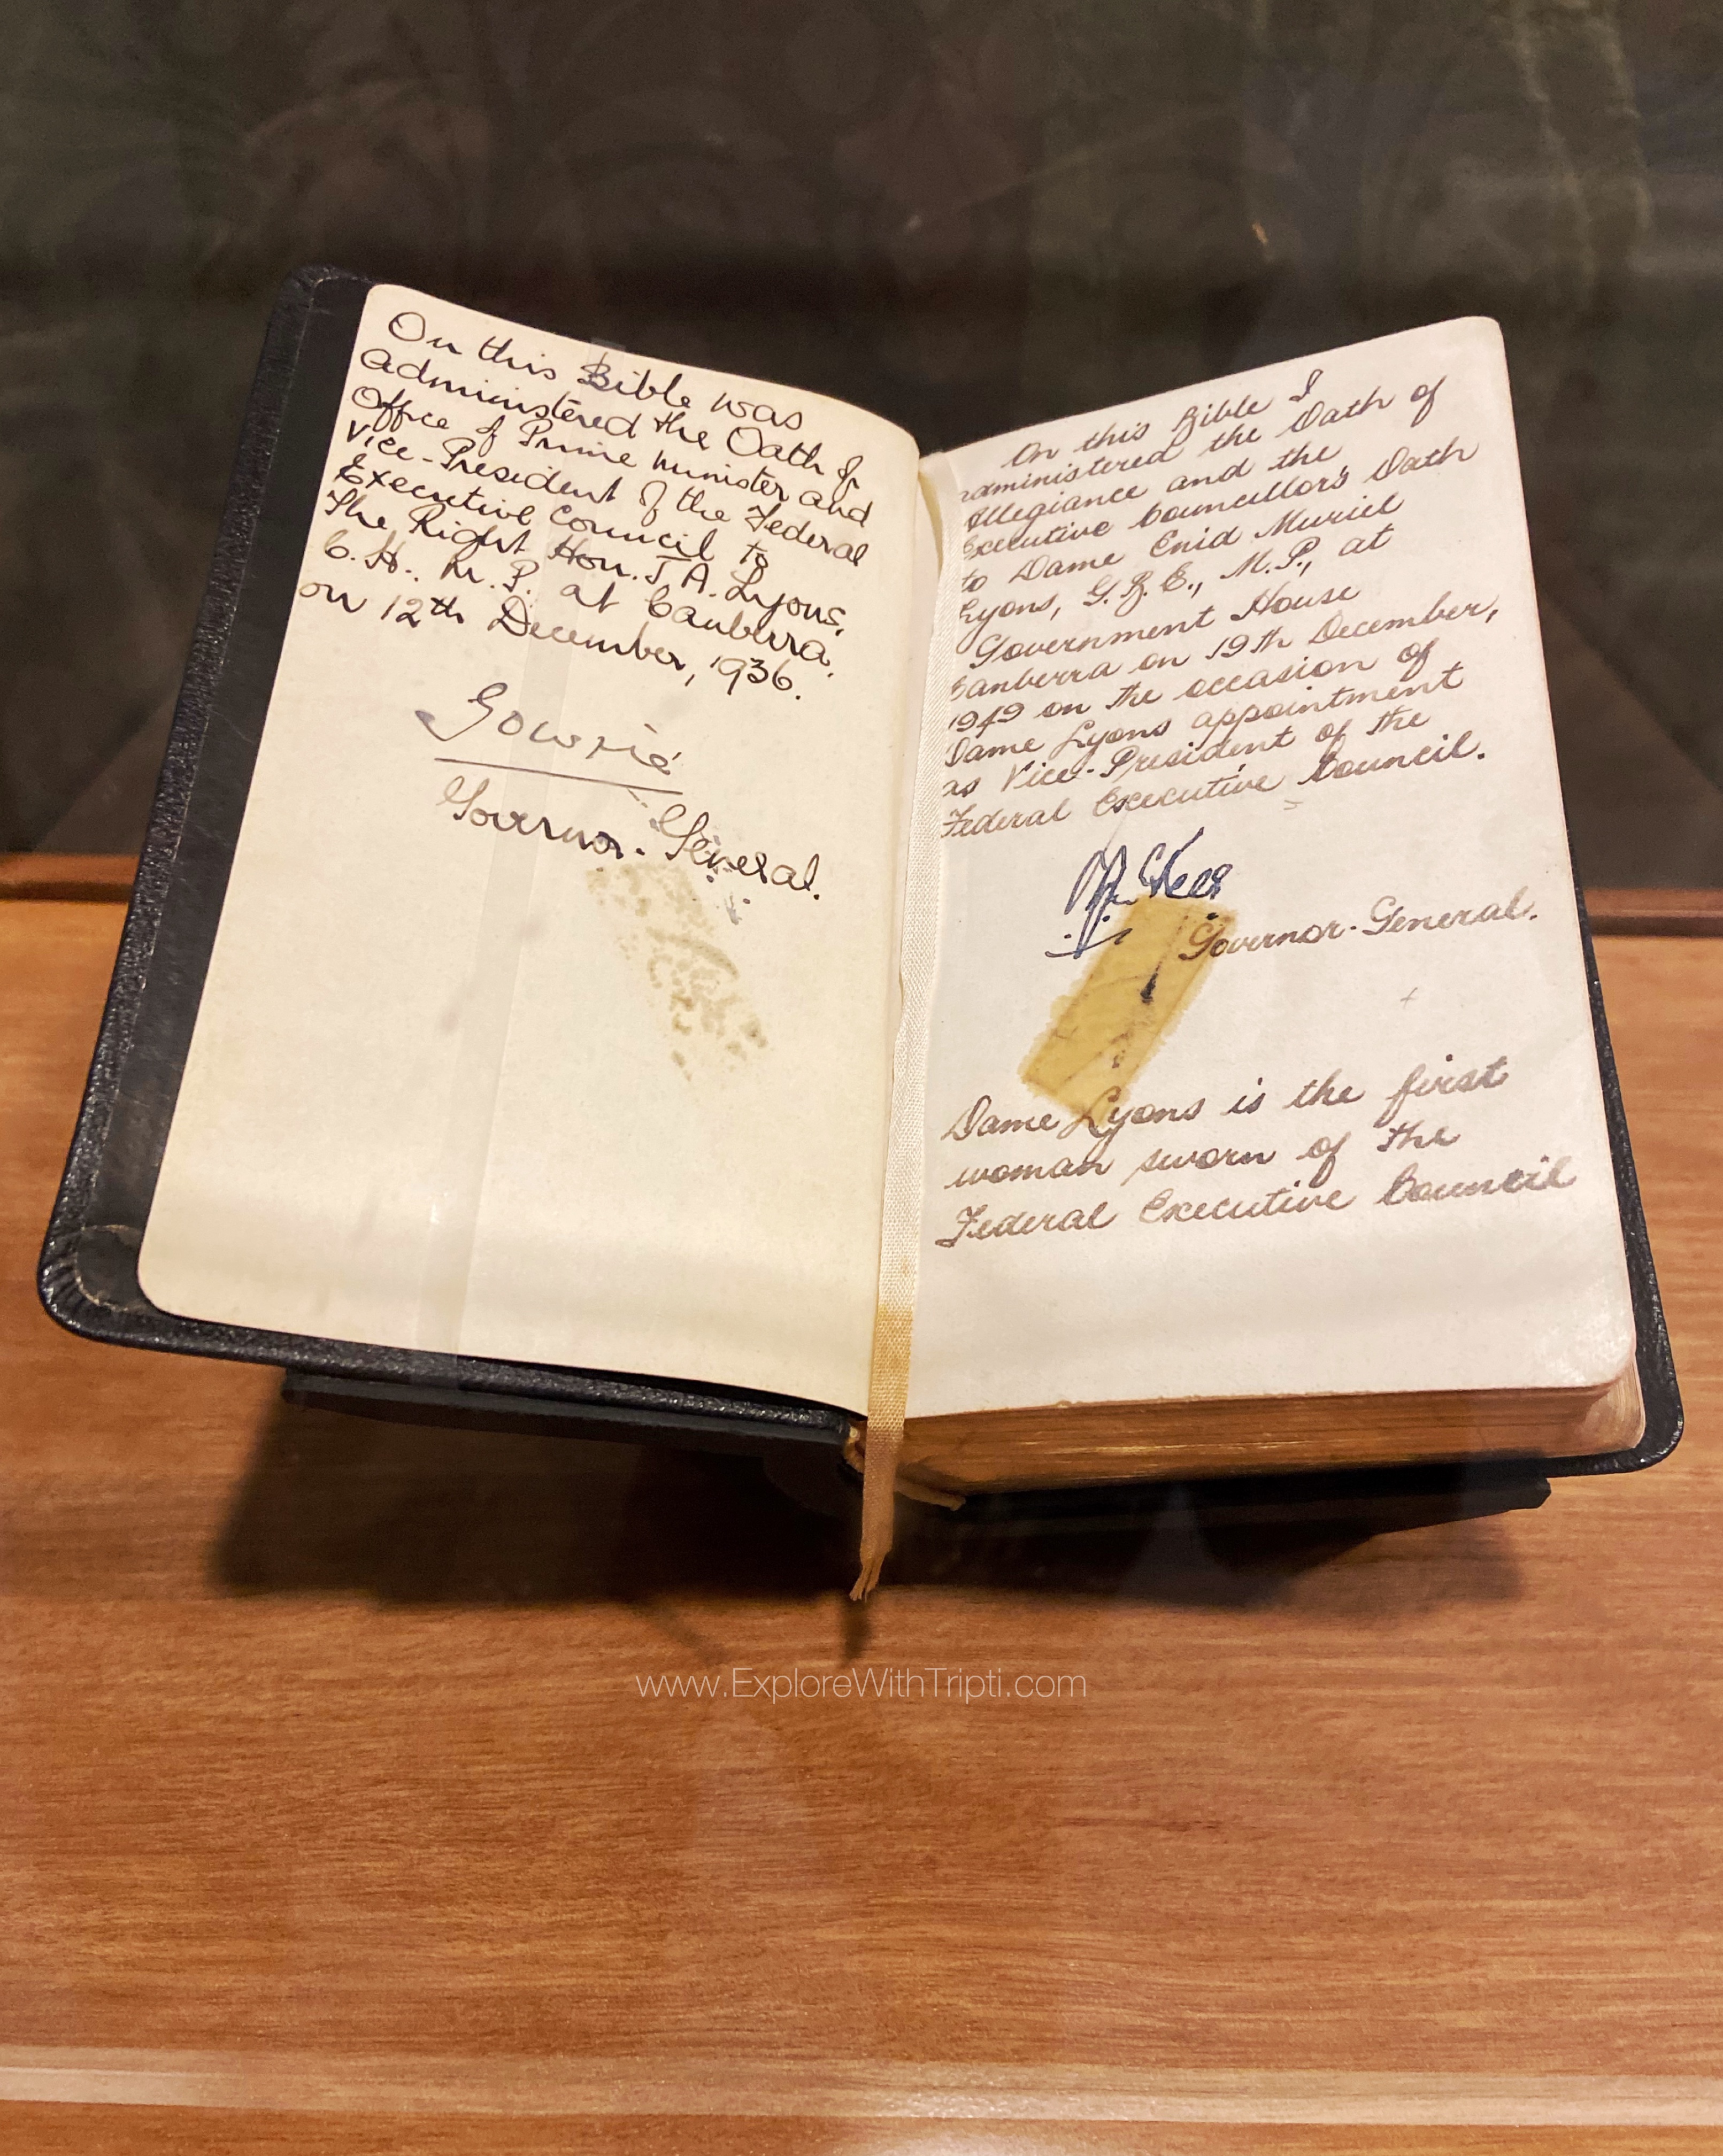 On this Bible was
administered the Oath of
Office of Prime Minister and
Vice-President of the Federal
Executive Council to
The Right Hon. J. A. Lyons,
C.H., M.P. at Canberra,
on 12th December, 1936.
Gowrie
Governor-General.
On this Bible I
administered the Oath of
Allegiance and the
Executive Councillors Oath
to Dame Enid Muriel
Lyons, G.B.E., M.P., at
Government House
Canberra on 19th December,
1949 on the occasion of
Dame Lyons appointment
as Vice-President of the
Federal Executive Council.
Governor-General.
Dame Lyons is the first
woman sworn of the
Federal Executive Council
www.ExploreWithTripti.com